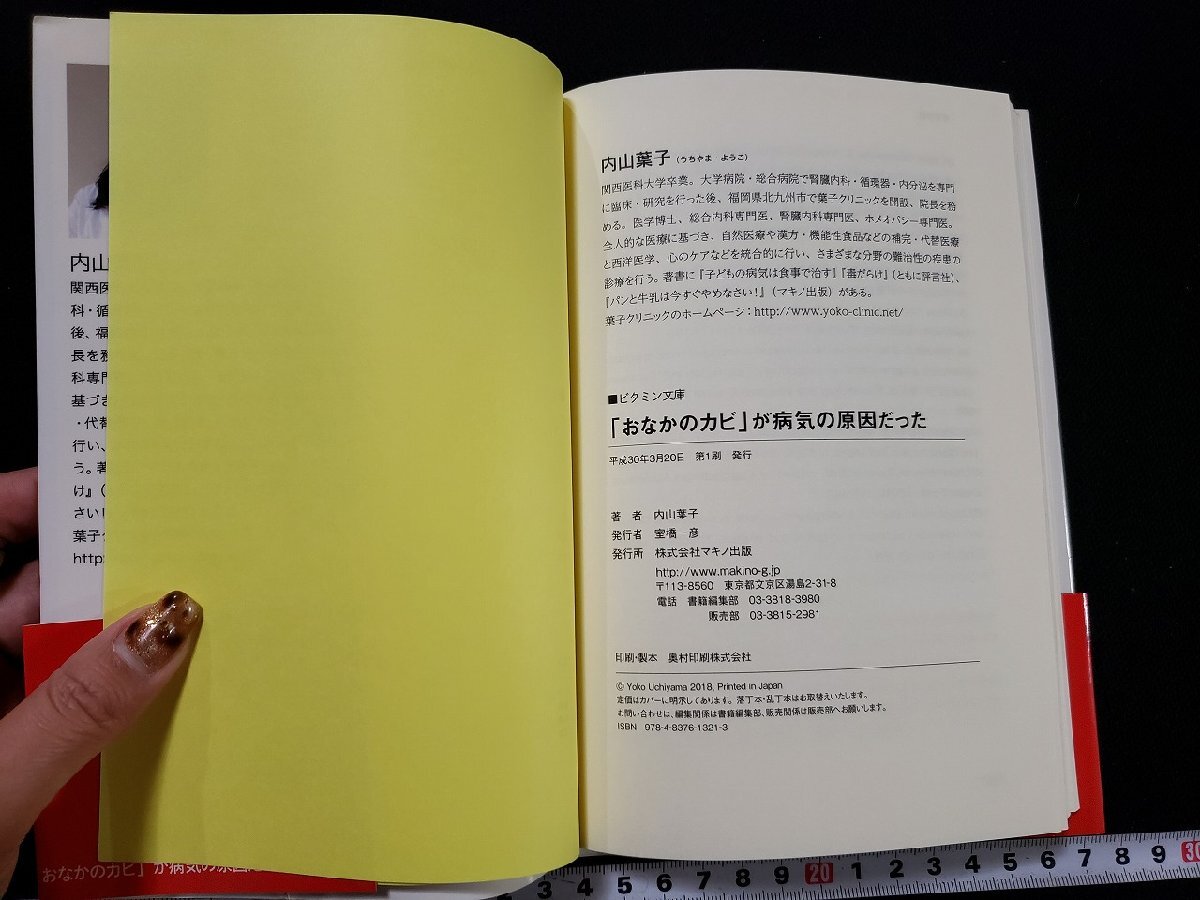 内山
関西医
科・循
後、福
長を務
科専門
基づき
・代替
行い、
う。著
け』（
さい！
葉子ク
http:
おなかのカビ」が病気の原因
内山葉子（うちやま ようこ）
関西医科大学卒業。大学病院・総合病院で腎臓内科・循環器・内分泌を専門
に臨床・研究を行った後、福岡県北九州市で葉子クリニックを開設、院長を務
める。医学博士、総合内科専門医、腎臓内科専門医、ホメオパシー専門医。
全人的な医療に基づき、自然医療や漢方・機能性食品などの補完・代替医療
と西洋医学、心のケアなどを統合的に行い、さまざまな分野の難治性の疾患の
診療を行う。著書に『子どもの病気は食事で治す』『毒だらけ』（ともに評言社）、
『パンと牛乳は今すぐやめなさい！』（マキノ出版）がある。
葉子クリニックのホームページ：http://www.yoko-clinic.net/
■ビタミン文庫
「おなかのカビ」が病気の原因だった
平成30年3月20日 第1刷 発行
著 者 内山葉子
発行者 室橋 彦
発行所 株式会社マキノ出版
http://www.makino-g.jp
〒113-8560 東京都文京区湯島2-31-8
電話 書籍編集部 03-3818-3980
販売部 03-3815-2981
印刷・製本 奥村印刷株式会社
© Yoko Uchiyama 2018, Printed in Japan
定価はカバーに明示してあります。落丁本・乱丁本はお取替えいたします。
お問い合わせは、編集関係は書籍編集部、販売関係は販売部へお願いします。
ISBN 978-4-8376-1321-3
3 4 5 6 7 8 9 20 1 2 3 4 5 6 7 8 9 30